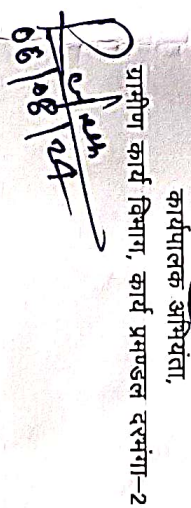 कार्यपालक अभियंता,
ग्रामीण कार्य विभाग, कार्य प्रमण्डल दरभंगा-2
06/08/24